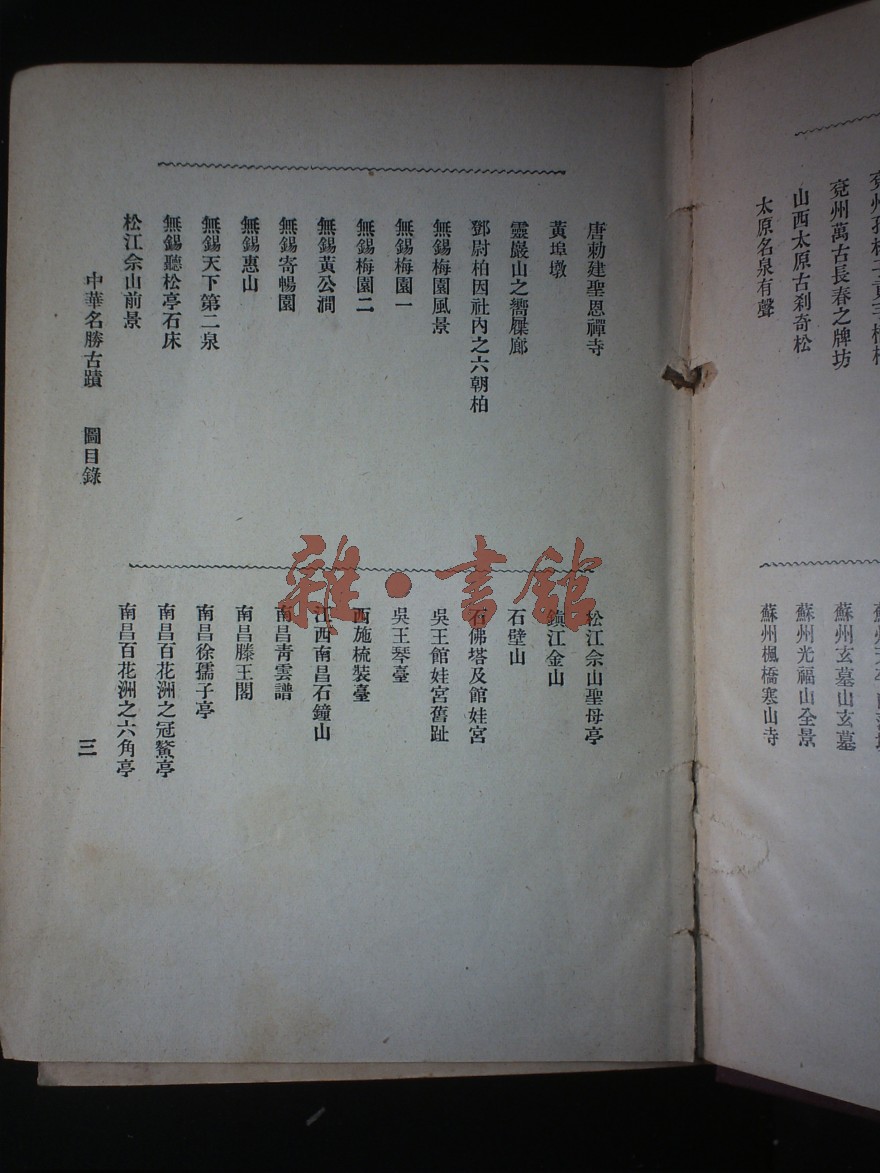 兗州萬古長春之牌坊
山西太原古刹奇松
太原名泉有聲
蘇州玄墓山玄墓
蘇州光福山全景
蘇州楓橋寒山寺
唐勅建聖恩禪寺
黃埠墩
靈巖山之嚮屧廊
鄧尉柏因社內之六朝柏
無錫梅園風景
無錫梅園一
無錫梅園二
無錫黃公澗
無錫寄暢園
無錫惠山
無錫天下第二泉
無錫聽松亭石床
松江佘山前景
松江佘山聖母亭
鎮江金山
石壁山
石佛塔及館娃宮
吳王館娃宮舊趾
吳王琴臺
西施梳裝臺
江西南昌石鐘山
南昌青雲譜
南昌滕王閣
南昌徐孺子亭
南昌百花洲之冠鰲亭
南昌百花洲之六角亭
中華名勝古蹟 圖目錄
三
雜·書館